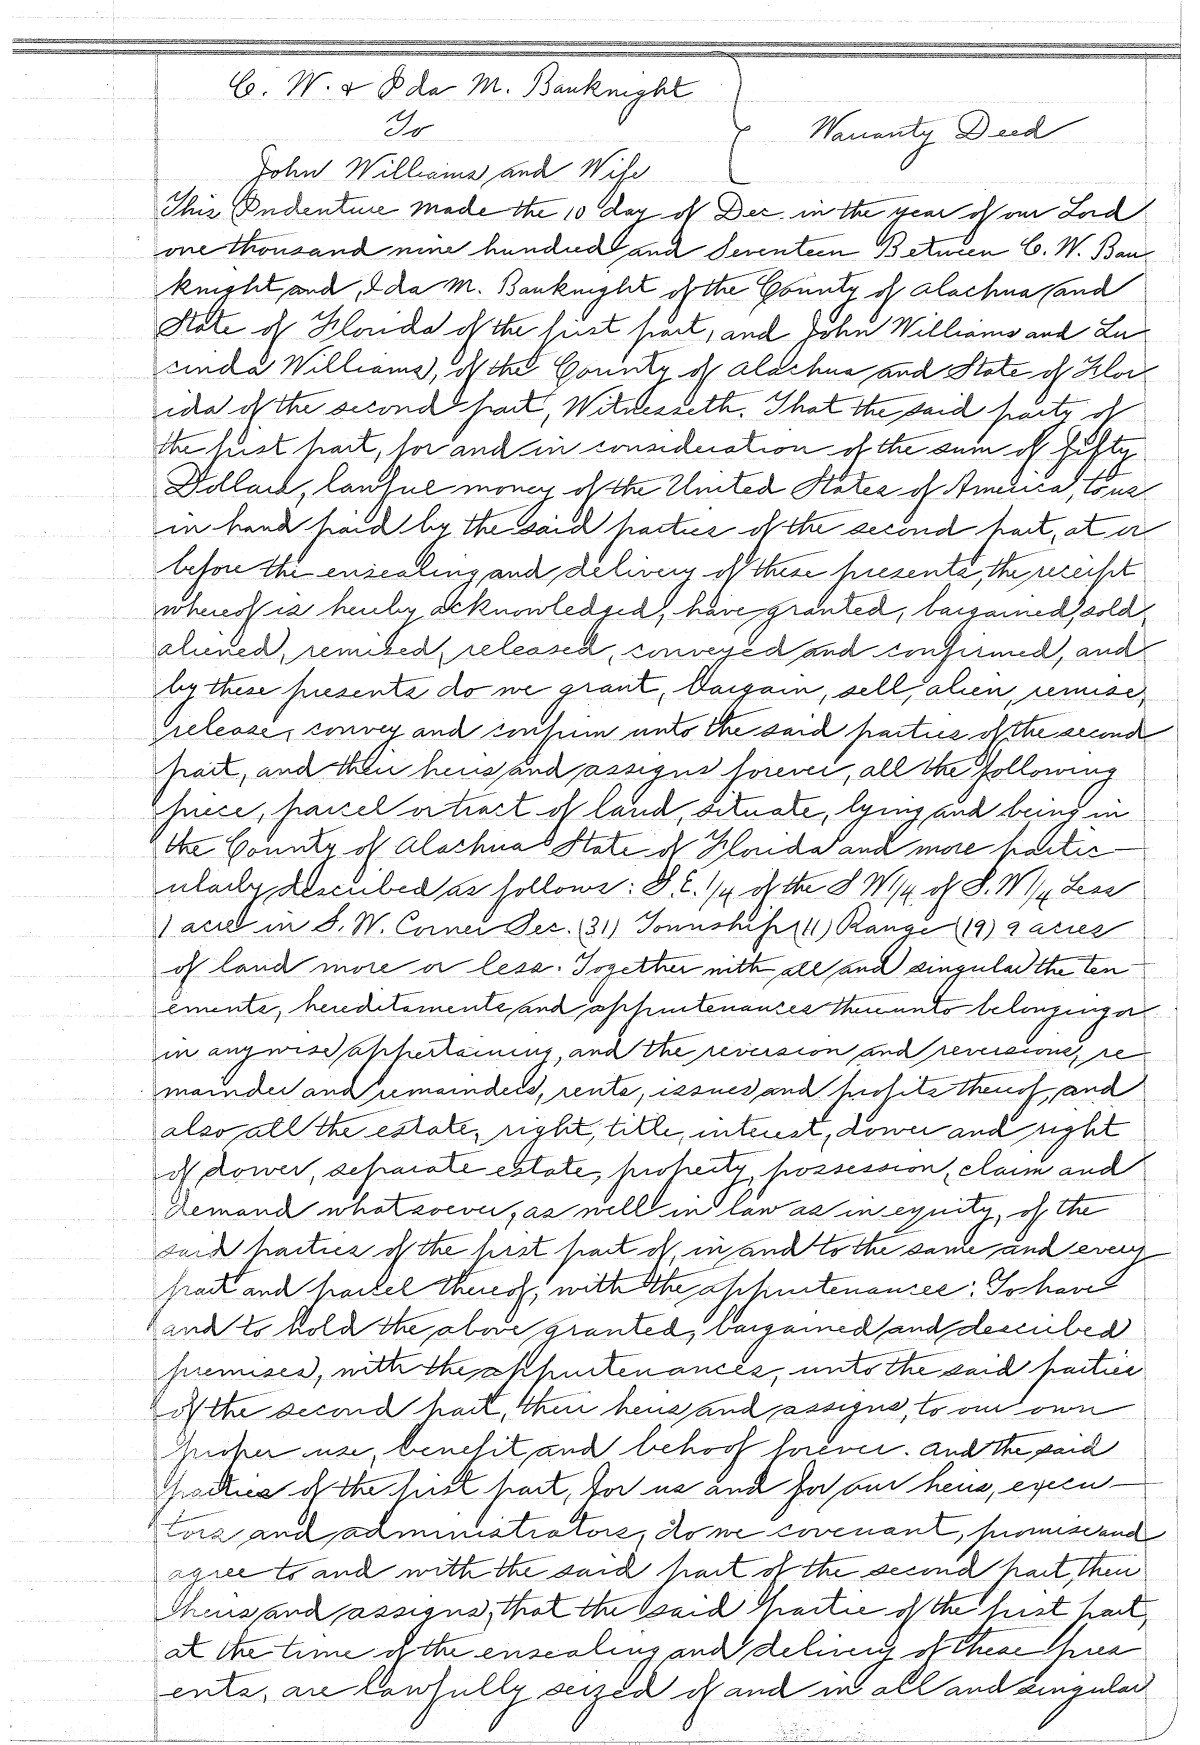 C. W. & Ida M. Bauknight
To
Warranty Deed
John Williams and Wife
This Indenture made the 10 day of Dec. in the year of our Lord
one thousand nine hundred and Seventeen Between C. W. Bau
knight and, Ida M. Bauknight of the County of Alachua and
State of Florida of the first part, and John Williams and Lu
cinda Williams, of the County of Alachua and State of Flor
ida of the second part, Witnesseth. That the said party of
the first part, for and in consideration of the sum of fifty
Dollars, lawful money of the United States of America, to us
in hand paid by the said parties of the second part, at or
before the ensealing and delivery of these presents, the receipt
whereof is hereby acknowledged, have granted, bargained, sold,
aliened, remised, released, conveyed and confirmed, and
by these presents do we grant, bargain, sell, alien, remise,
release, convey and confirm unto the said parties of the second
part, and their heirs and assigns forever, all the following
piece, parcel or tract of land, situate, lying and being in
the County of Alachua State of Florida and more partic—
ularly described as follows: S.E. 1/4 of the S W 1/4 of S. W 1/4 Less
1 acre in S. W. Corner Sec. (31) Township (11) Range (19) 9 acres
of land more or less. Together with all and singular the ten
ements, hereditaments and appurtenances thereunto belonging or
in anywise appertaining, and the reversion and reversions, re
mainder and remainders, rents, issues and profits thereof, and
also all the estate, right, title, interest, dower and right
of dower, separate estate, property, possession, claim and
demand whatsoever, as well in law as in equity, of the
said parties of the first part of, in and to the same and every
part and parcel thereof, with the appurtenances: To have
and to hold the above granted, bargained and described
premises, with the appurtenances, unto the said parties
of the second part, their heirs and assigns, to our own
proper use, benefit and behoof forever. And the said
parties of the first part, for us and for our heirs, execu—
tors and administrators, do we covenant, promise and
agree to and with the said part of the second part, their
heirs and assigns, that the said partie of the first part,
at the time of the ensealing and delivery of these pres
ents, are lawfully seized of and in all and singular